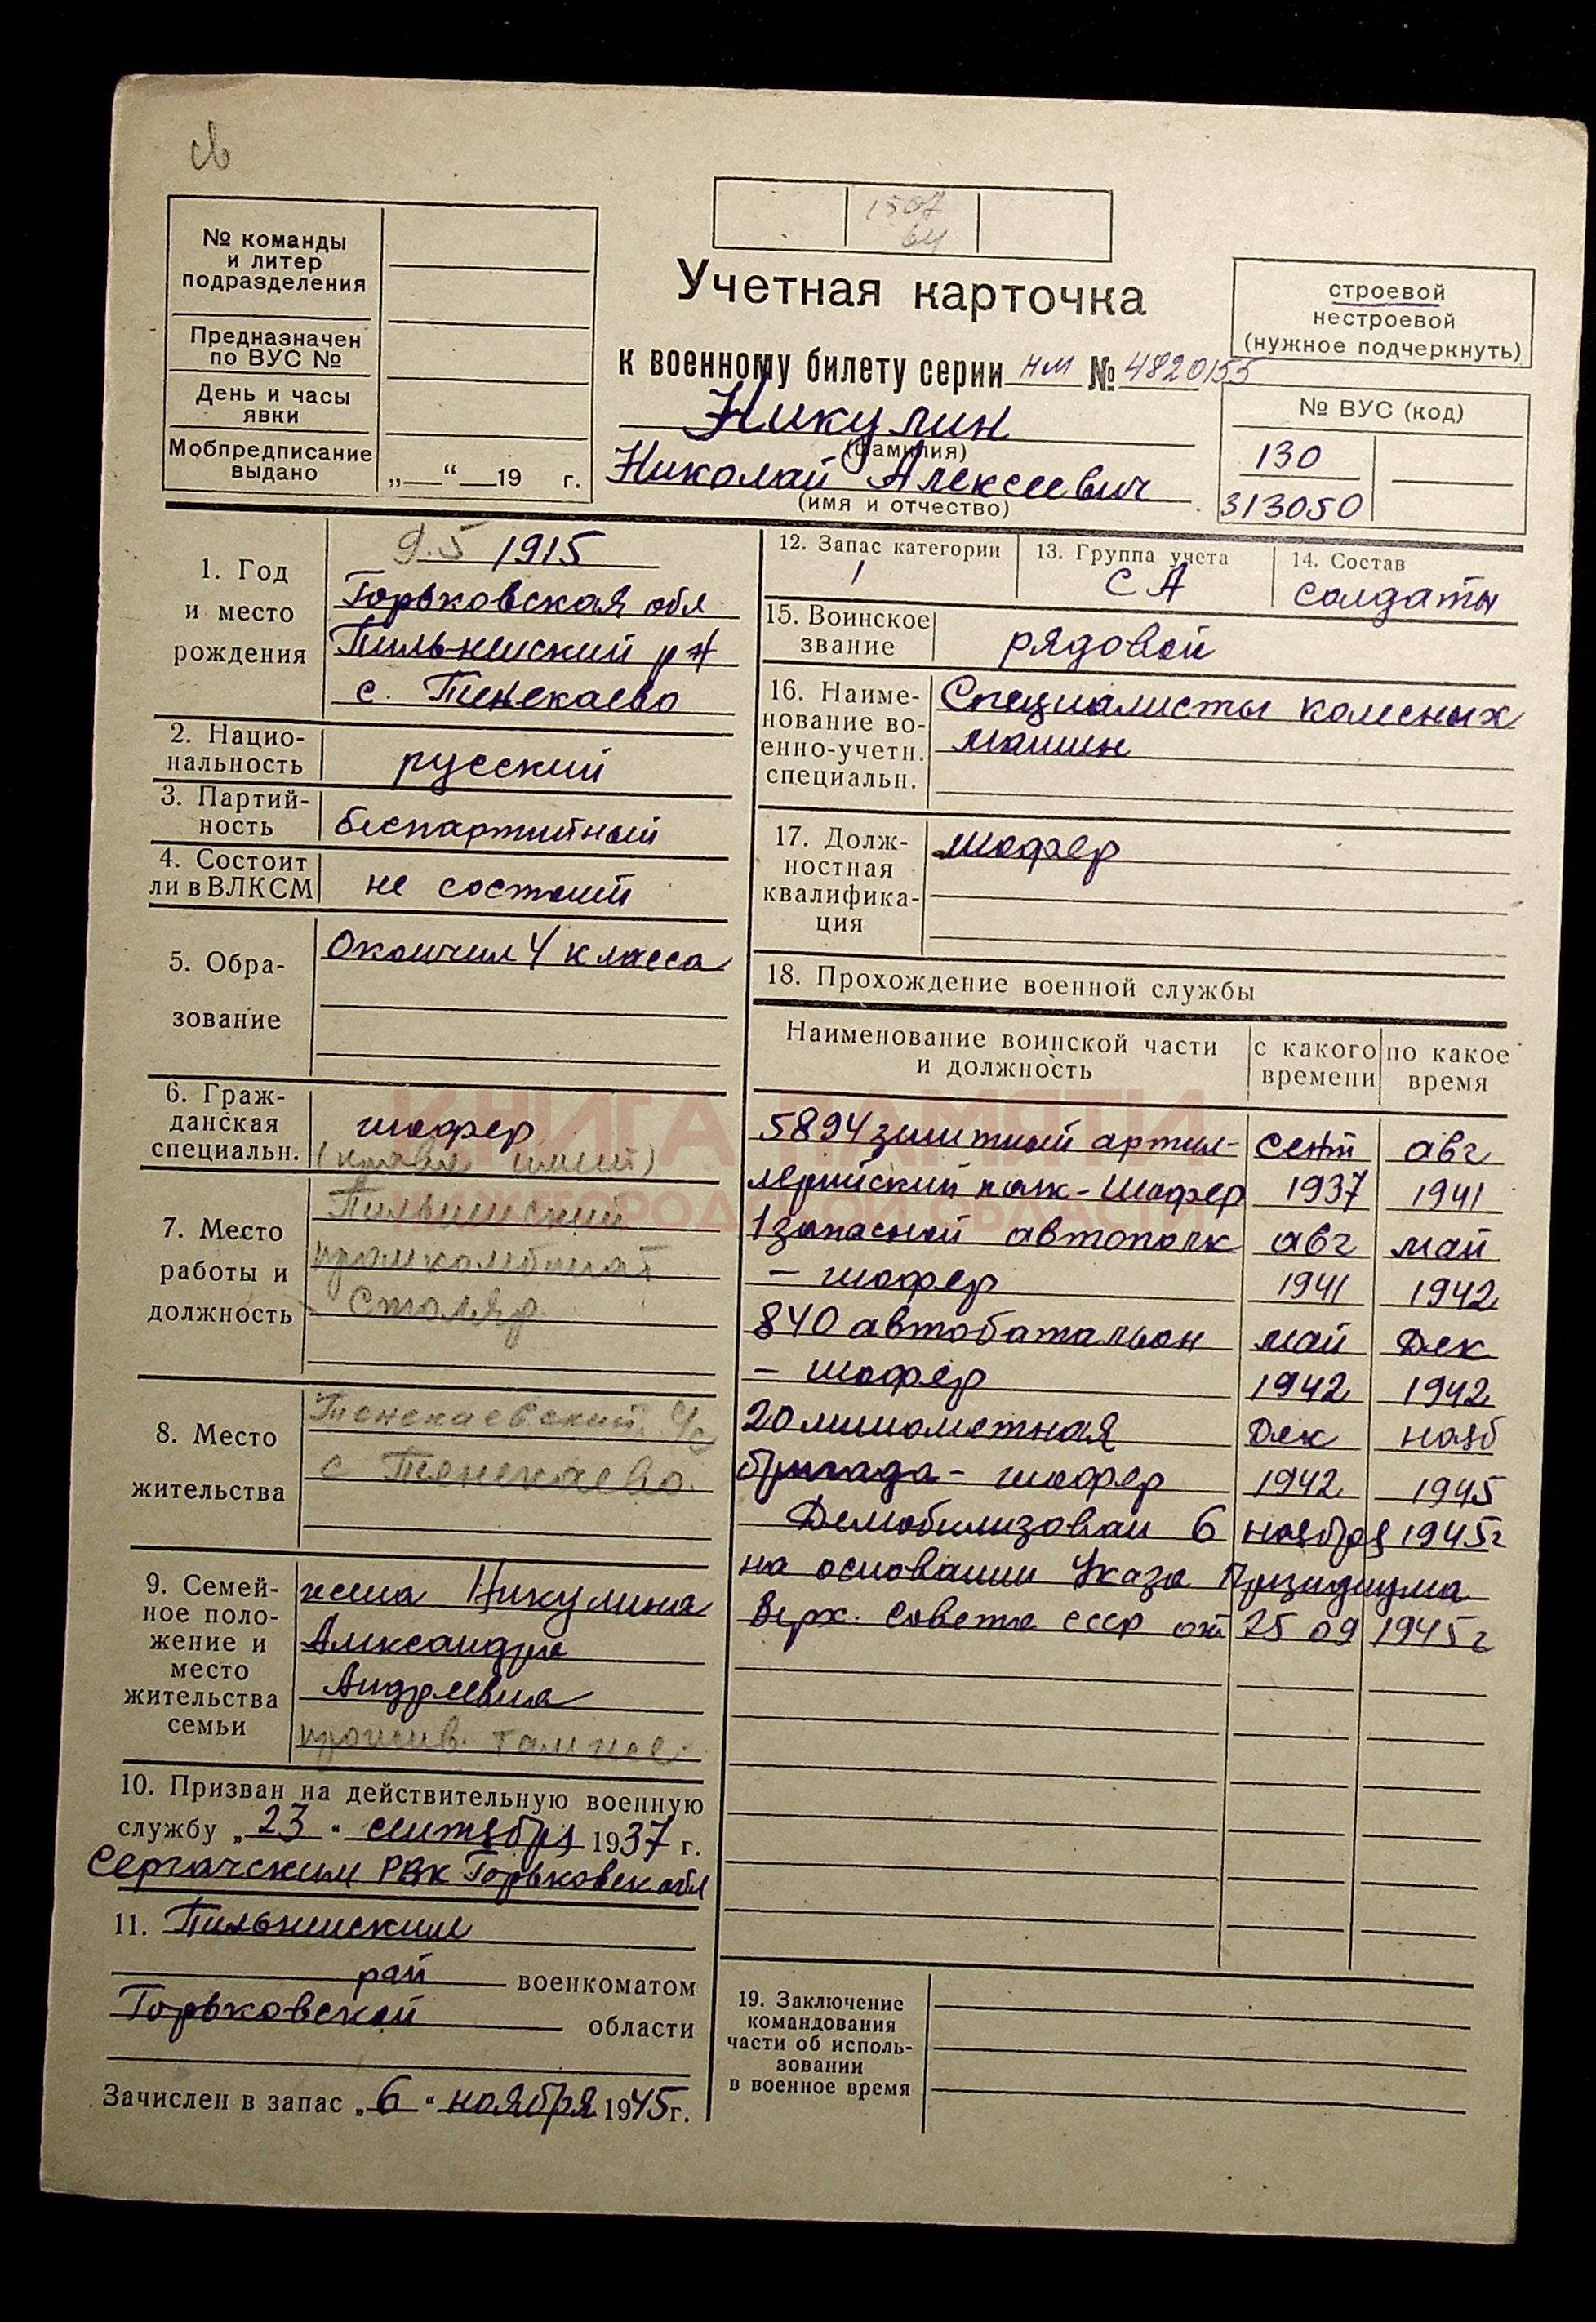 1507
64
№ команды
и литер
подразделения
Предназначен
по ВУС №
День и часы
явки
Мобпредписание
выдано
„ “ 19 г.
Учетная карточка
к военному билету серии НМ № 4820155
Никулин
(фамилия)
Николай Алексеевич
(имя и отчество)
строевой
нестроевой
(нужное подчеркнуть)
№ ВУС (код)
130
313050
1. Год
и место
рождения
9.5 1915
Горьковская обл
Пильнинский р-н
с. Тенекаево
2. Нацио-
нальность
русский
3. Партий-
ность
беспартийный
4. Состоит
ли в ВЛКСМ
не состоит
5. Обра-
зование
Окончил 4 класса
6. Граж-
данская
специальн.
шофер
(права имеет)
7. Место
работы и
должность
Пильнинский
промкомбинат
Столяр
8. Место
жительства
Тенекаевский с/с
с Тенекаево.
9. Семей-
ное поло-
жение и
место
жительства
семьи
жена Никулина
Александра
Андреевна
прожив. там же
10. Призван на действительную военную
службу „23“ сентября 1937 г.
Сергачским РВК Горьковск обл
11. Пильнинским
рай военкоматом
Горьковской области
Зачислен в запас „6“ ноября 1945 г.
12. Запас категории
1
13. Группа учета
СА
14. Состав
солдаты
15. Воинское
звание
рядовой
16. Наиме-
нование во-
енно-учетн.
специальн.
Специалисты колесных
машин
17. Долж-
ностная
квалифика-
ция
шофер
18. Прохождение военной службы
Наименование воинской части
и должность
с какого
времени
по какое
время
5894 зенитный артил- сент авг
лерийский полк - шофер 1937 1941
1 запасной автополк авг май
- шофер 1941 1942
840 автобатальон май Дек
- шофер 1942 1942
20 минометная Дек нояб
бригада - шофер 1942 1945
Демобилизован 6 ноября 1945г
на основании Указа Президиума
Верх. Совета СССР от 25 09 1945г
19. Заключение
командования
части об исполь-
зовании
в военное время
КНИГА ПАМЯТИ
НИЖЕГОРОДСКОЙ ОБЛАСТИ